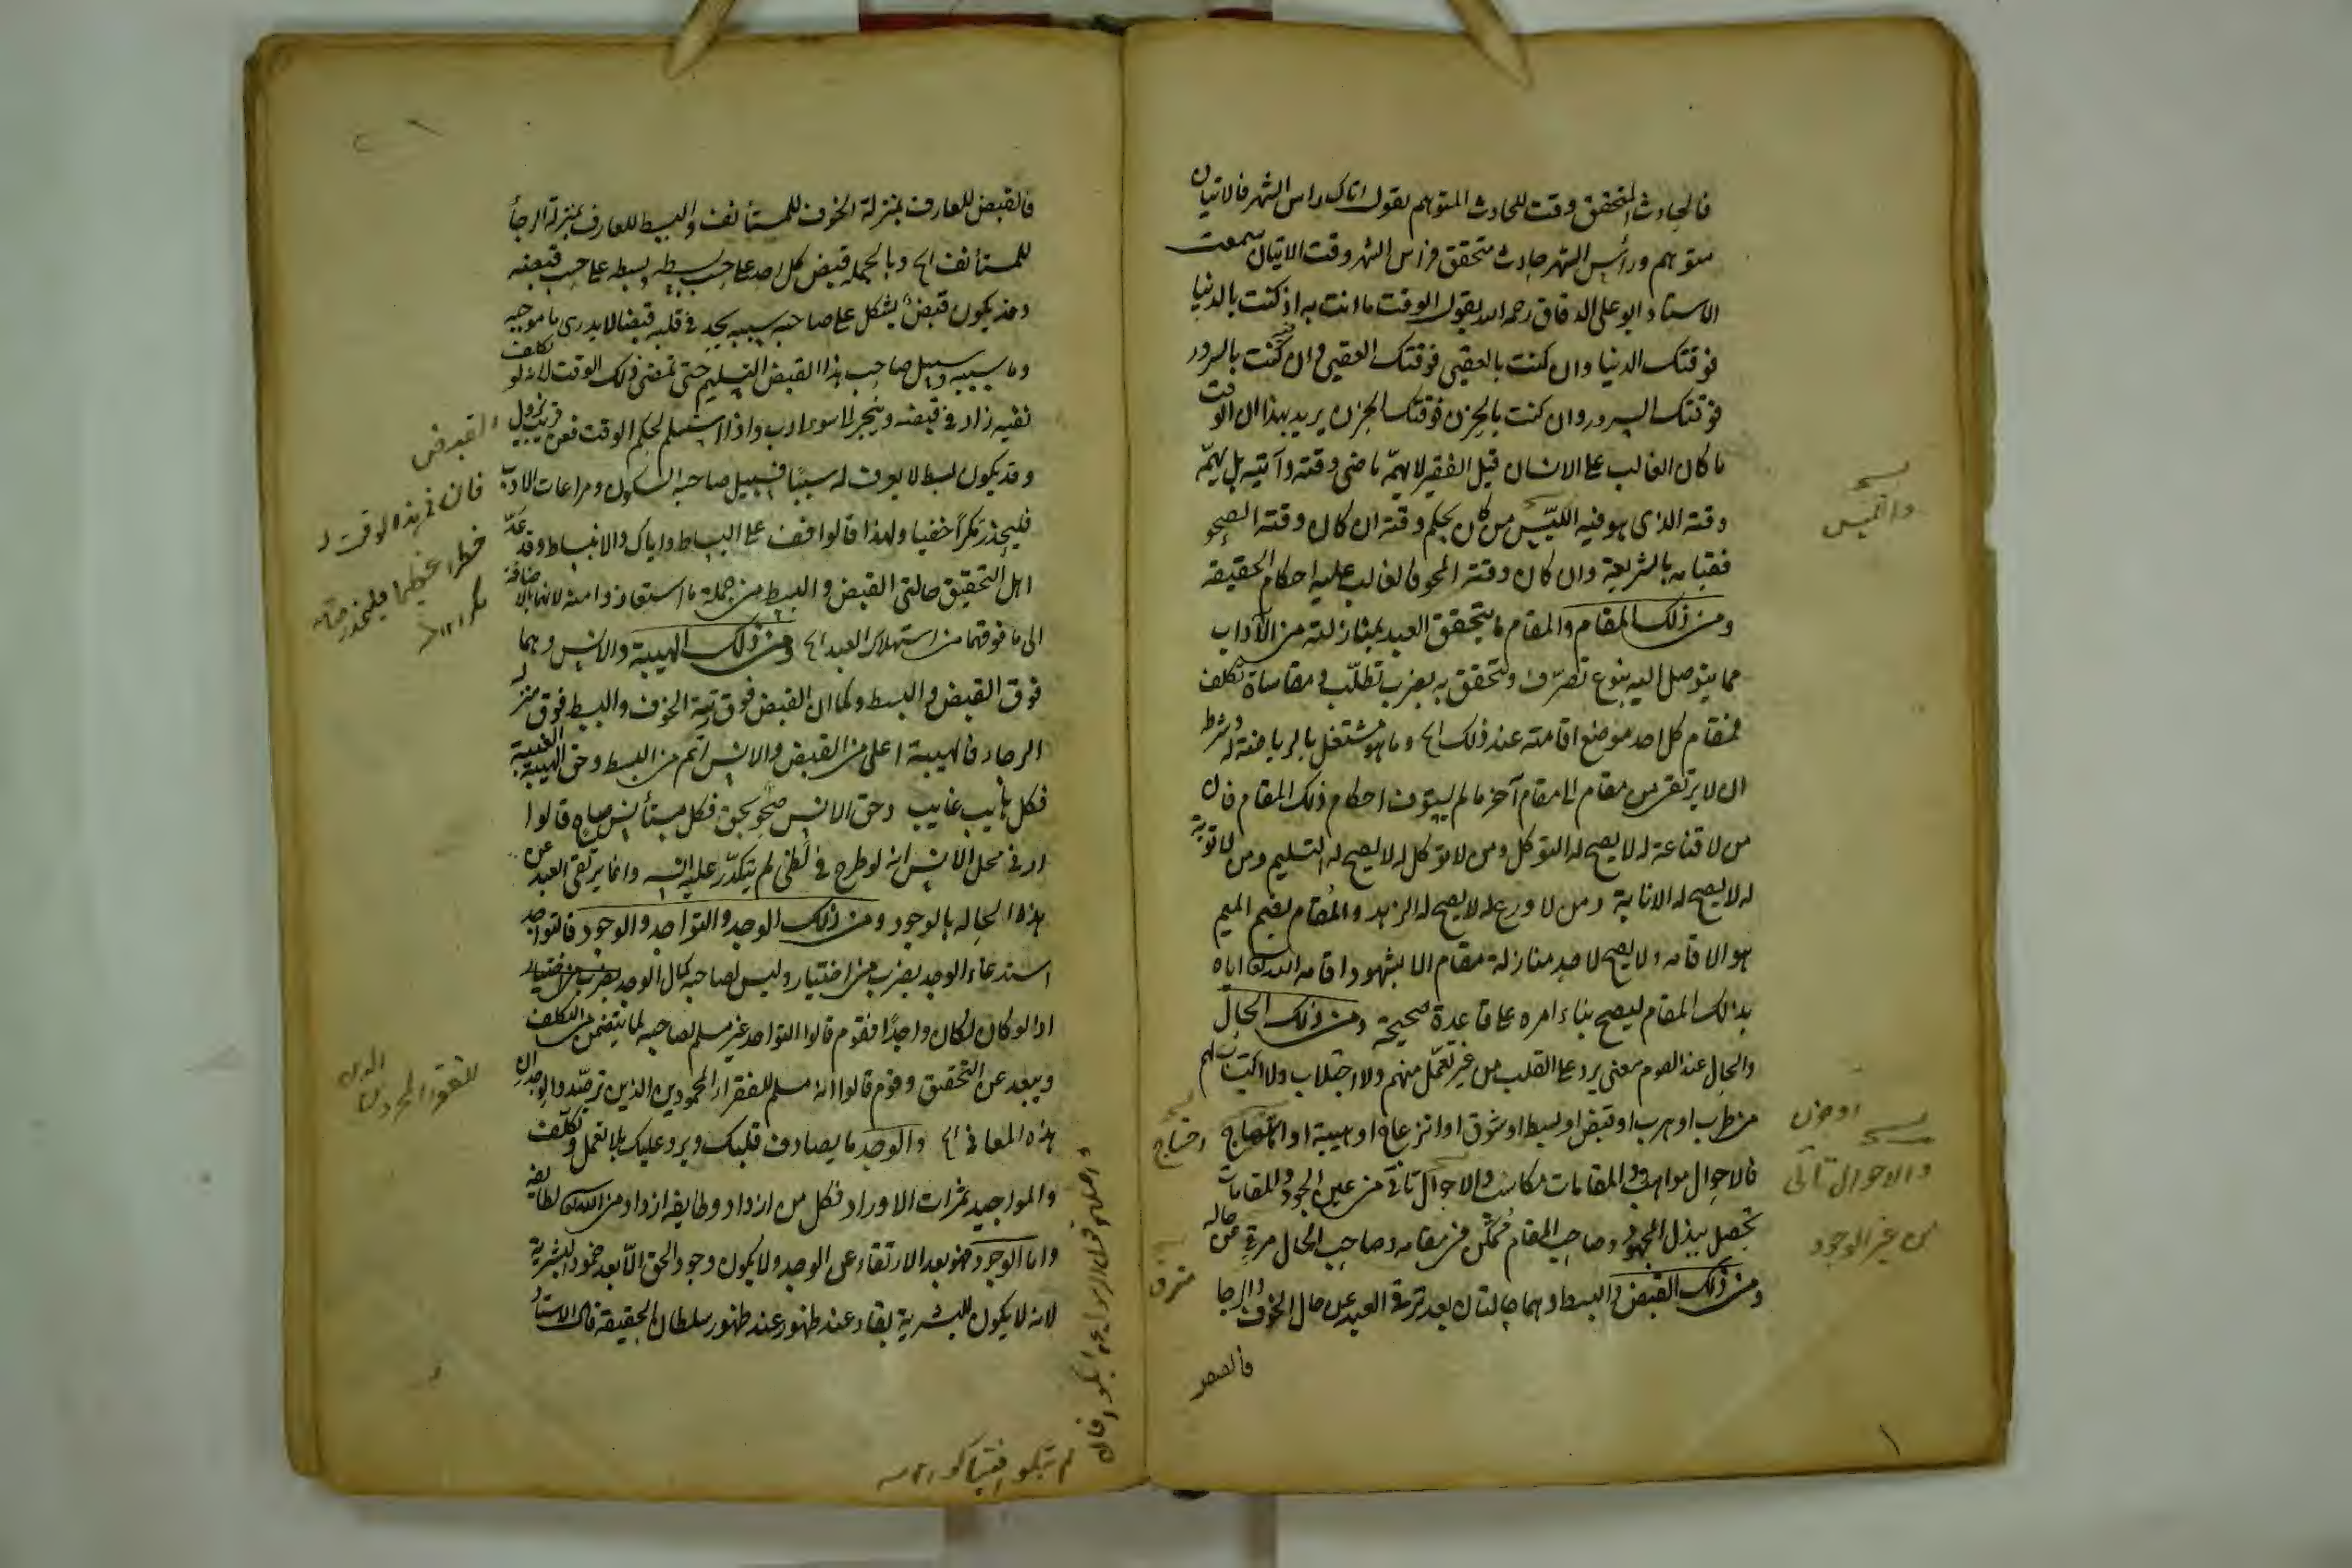 فالحادث المتحقق وقت للحادث المتوهم يقول اتاك راس الشهر فالاتيان
متوهم ورأس الشهر حادث متحقق فراس الشهر وقت الاتيان سمعت
الاستاد ابو علي الدقاق رحمه الله يقول الوقت ما انت به اذ كنت بالدنيا
فوقتك الدنيا وان كنت بالعقبي فوقتك العقبي وان كنت بالسرور
فوقتك السرور وان كنت بالحزن فوقتك الحزن يريد بهذا ان الوقت
ما كان الغالب على الانسان قيل الفقير لا يهمّه ماضي وقته وآتيه بل يهمّه
وقته الذي هو فيه الكيّس من كان بحكم وقته ان كان وقته الصحو
فقيامه بالشريعة وان كان وقته المحو فالغالب عليه احكام الحقيقة
ومن ذلك المقام والمقام ما يتحقق العبد بمنازلته من الآداب
مما يتوصل اليه بنوع تصرّف ويتحقق به بضرب تطلّب ومقاساة تكلف
فمقام كل احد موضع اقامته عند ذلك الخ وما هو مشتغل بالرياضة له وشرط
ان لا يرتقي من مقام الى مقام آخر ما لم يستوف احكام ذلك المقام فان
من لا قناعة له لا يصح له التوكل ومن لا توكل له لا يصح له التسليم ومن لا توبة
له لا يصح له الانابة ومن لا ورع له لا يصح له الزهد والمُقام بضم الميم
هو الاقامه ولا يصح لاحد منازلة مقام الا بشهود اقامه الله تعالى اياه
بذلك المقام ليصح بناء امره على قاعدة صحيحة ومن ذلك الحال
والحال عند القوم معنى يرد على القلب من غير تعمّل منهم ولا اجتلاب ولا اكتساب لهم
من طرب او هرب او قبض او بسط او شوق او انزعاج او هيبة او احتياج
فالاحوال مواهب والمقامات مكاسب والاحوال تأتي من عين الجود والمقامات
تحصل ببذل المجهود وصاحب المقام مُمكّن في مقامه وصاحب الحال مرق عن حاله
ومن ذلك القبض والبسط وهما حالتان بعد ترقي العبد عن حال الخوف والرجا
فالقبض
والاحوال تأتي
من غير الوجود
فالقبض للعارف بمنزلة الخوف للمستأنف والبسط للعارف بمنزلة الرجأ
للمستأنف الخ وبالجمله قبض كل احد على حسب بسطه وبسطه على حسب قبضه
وقد يكون قبض يشكل على صاحبه سببه يجد في قلبه قبضا لا يدرى ما موجبه
وما سببه وسبيل صاحب هذا القبض التسليم حتى تمضى ذلك الوقت لانه لو تكلف
نفيه زاد في قبضه وينجر لاسوء ادب واذا استسلم لحكم الوقت فعن قريب يزول
وقد يكون بسط لا يعرف له سببًا فسبيل صاحبه السكون ومراعات الادب
فليحذر مكرًا خفيا ولهذا قالوا قف على البساط واياك والانبساط وقد عدّ
اهل التحقيق حالتي القبض والبسط من جملة ما استعاذوا منه لانهما بالاضافة
الى ما فوقهما من استهلاك العبد الخ ومن ذلك الهيبة والانس وهما
فوق القبض والبسط وكما ان القبض فوق رتبة الخوف والبسط فوق منزله
الرجاء فالهيبة اعلى من القبض والانس اتم من البسط وحق الهيبة الغيبة
فكل هائب غايب وحق الانس صحو بحق فكل مستأنس صاح قالوا
ادنى محل الانس انه لو طرح في لظى لم يتكدّر عليه انسه وانما يرتقى العبد عن
هذه الحاله بالوجود ومن ذلك الوجد والتواجد والوجود فالتواجد
استدعاء الوجد بضرب من اختيار وليس لصاحبه كمال الوجد بضرب من اختيار
اذ لو كان لكان واجدًا فقوم قالوا التواجد غير مسلم لصاحبه لما يتضمن من التكلف
ويبعد عن التحقيق وقوم قالوا انه مسلم للفقراء المجردين الذين ترصّدوا لوجدان
هذه المعاني الخ والوجد ما يصادف قلبك ويرد عليك بلا تعمل وتكلّف
والمواجيد ثمرات الاوراد فكل من ازداد وظايفه ازداد من الله تعالى لطايفه
واما الوجود فهو بعد الارتقاء عن الوجد ولا يكون وجود الحق الّا بعد خمود البشرية
لانه لا يكون للبشرية بقاء عند ظهور عند ظهور سلطان الحقيقة قال الاستاد
القبض
فان في هذا الوقت له
خطرا عظيما فليحذر صاحبه